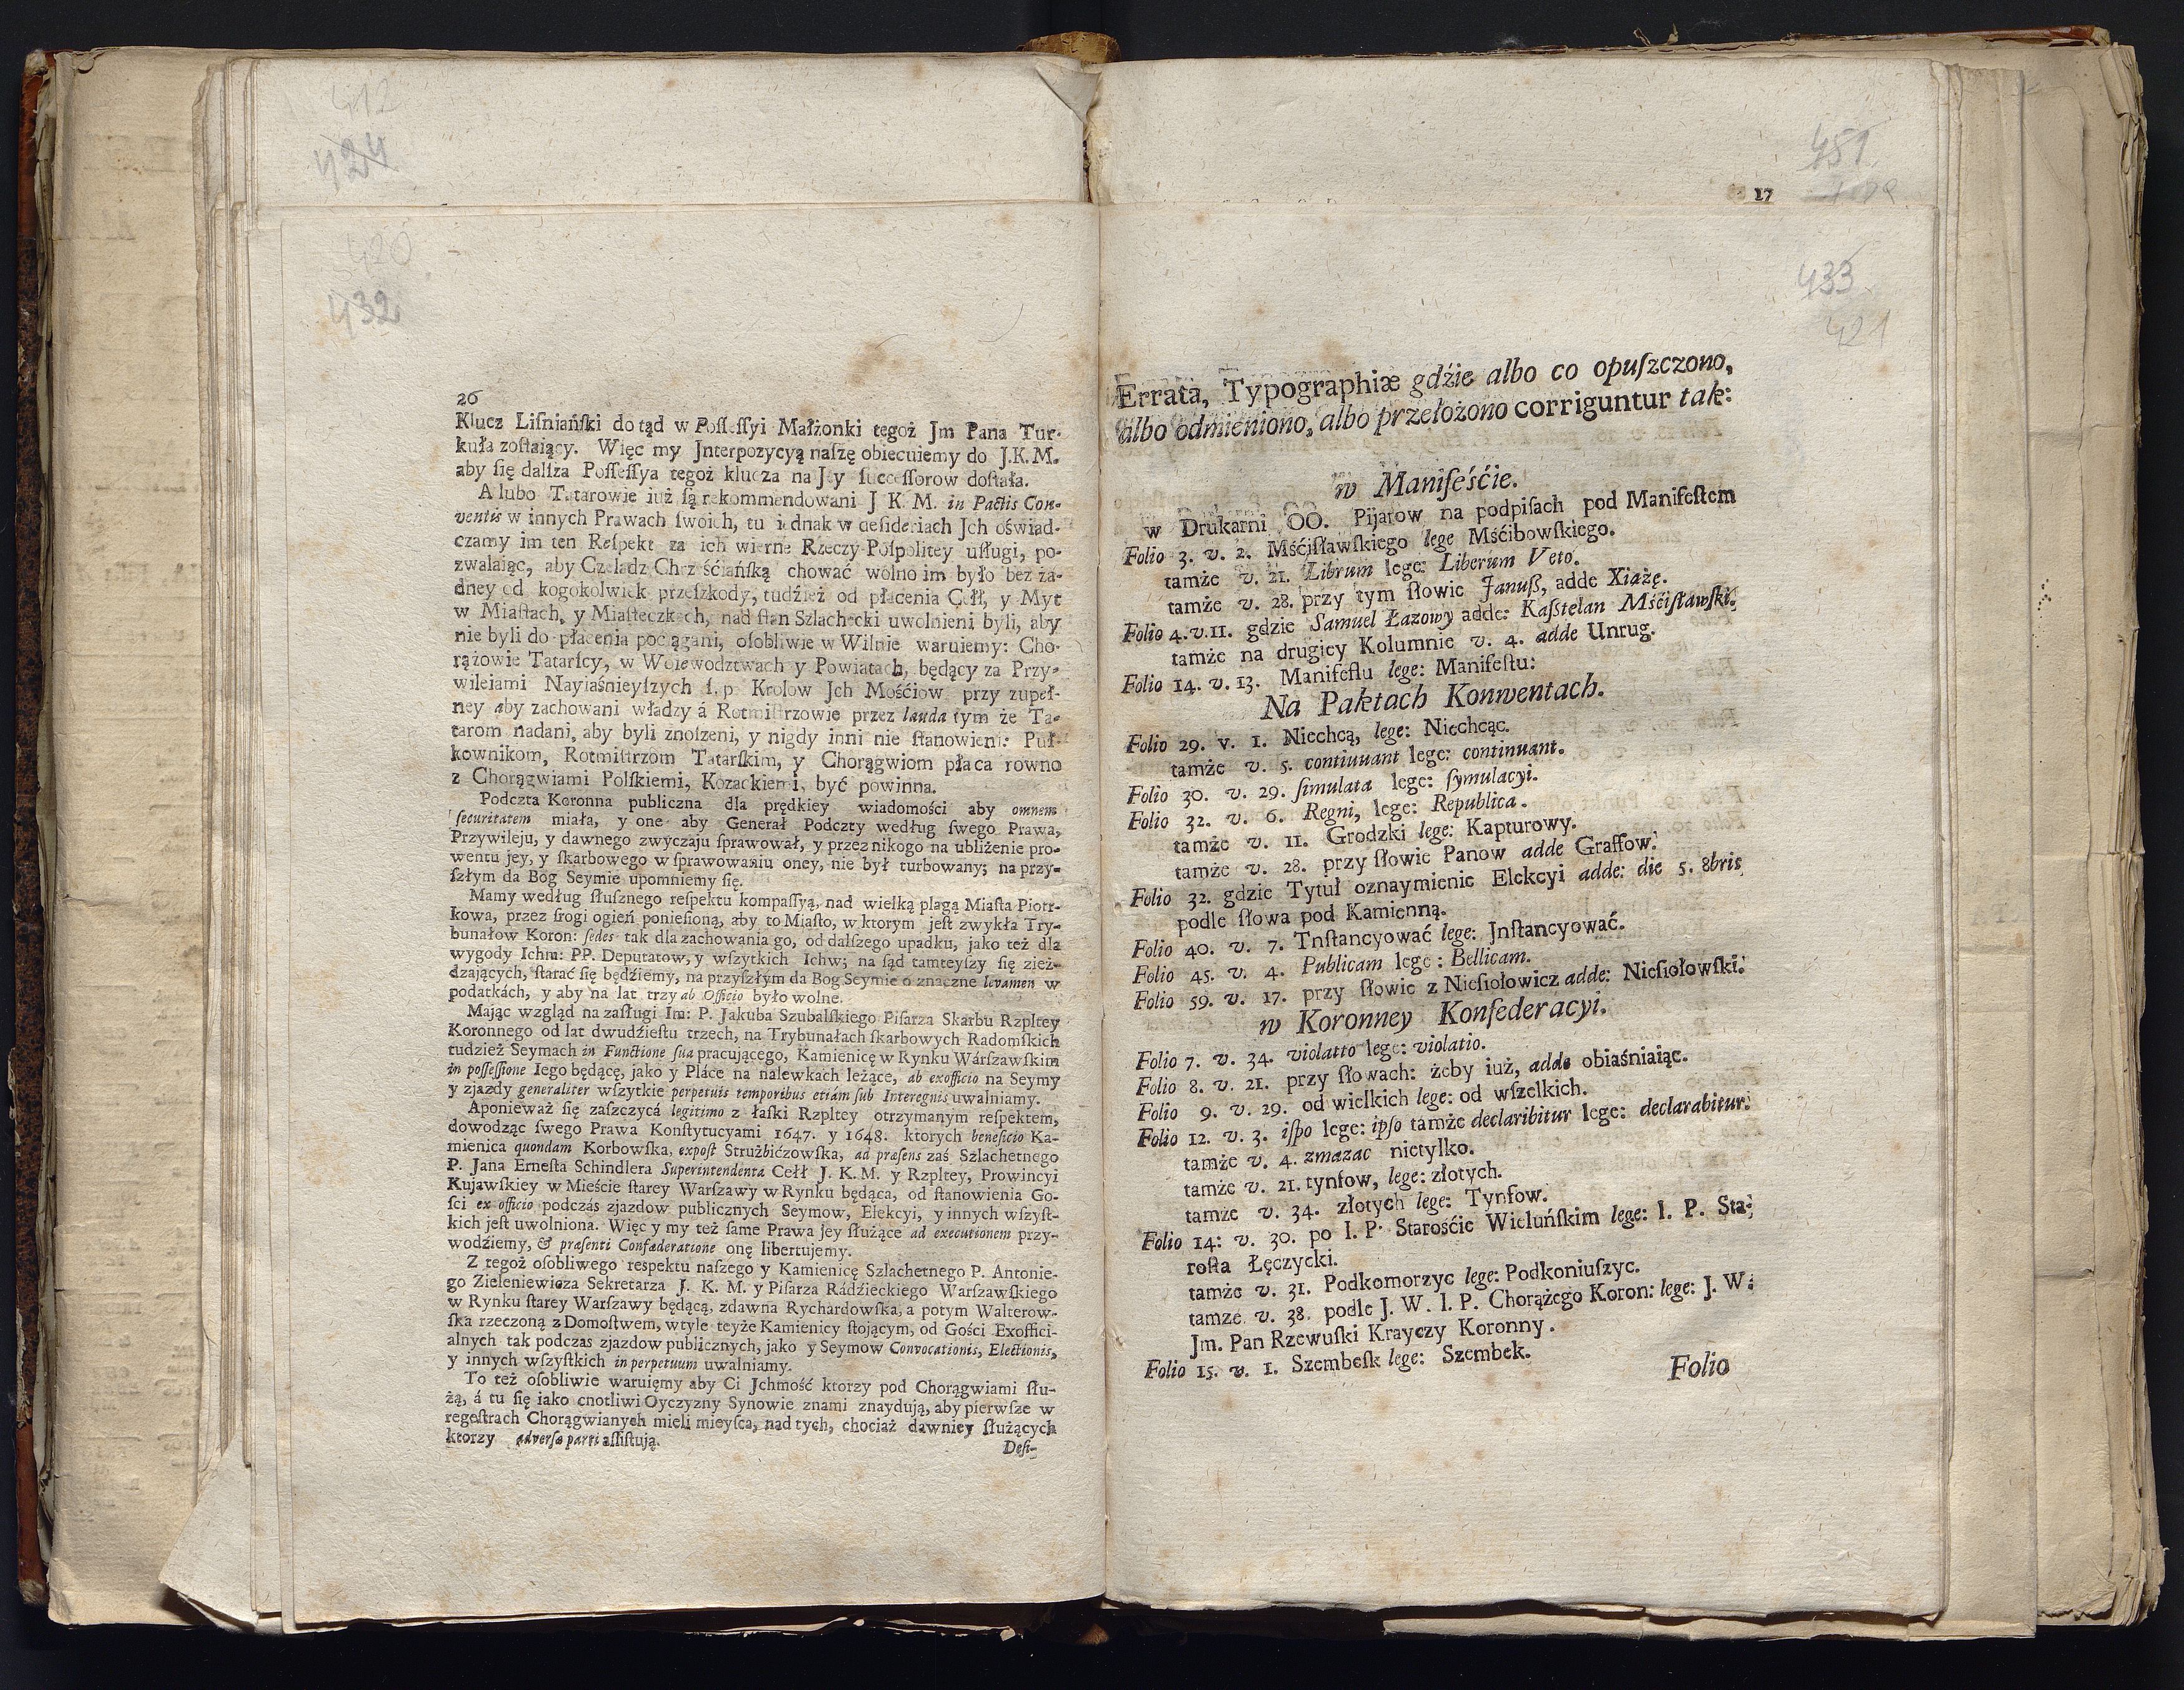 412
424
420
432
26
Klucz Liſniańſki do tąd w Poſſeſſyi Małżonki tegoż Jm Pana Tur-
kuła zoſtaiący. Więc my Jnterpozycyą naſzę obiecuiemy do J.K.M.
aby ſię dalſza Poſſeſſya tegoż klucza na Jey ſucceſſorow doſtała.
A lubo Tatarowie iuż ſą rekommendowani J K M. in Pactis Con-
ventis w innych Prawach ſwoich, tu iednak w deſideriach Jch oświad-
czamy im ten Reſpekt za ich wierne Rzeczy-Poſpolitey uſługi, po-
zwalaiąc, aby Czeladz Chrześćiańſką chować wolno im było bez ża-
dney od kogokolwiek przeſzkody, tudźież od płacenia Cełł, y Myt
w Miaſtach, y Miaſteczkach, nad ſtan Szlachecki uwolnieni byli, aby
nie byli do płacenia pociągani, oſobliwie w Wilnie waruiemy: Cho-
rążowie Tatarſcy, w Woiewodztwach y Powiatach, będący za Przy-
wileiami Nayiaśnieyſzych ś. p. Krolow Jch Mośćiow przy zupeł-
ney aby zachowani władzy á Rotmiſtrzowie przez lauda tym że Ta-
tarom nadani, aby byli znoſzeni, y nigdy inni nie ſtanowieni: Puł-
kownikom, Rotmiſtrzom Tatarſkim, y Chorągwiom płaca rowno
z Chorągwiami Polſkiemi, Kozackiemi, być powinna.
Podczta Koronna publiczna dla prędkiey wiadomości aby omnem
ſecuritatem miała, y one aby Generał Podczty według ſwego Prawa,
Przywileju, y dawnego zwyczaju ſprawował, y przez nikogo na ubliżenie pro-
wentu jey, y ſkarbowego w ſprawowaniu oney, nie był turbowany; na przy-
ſzłym da Bog Seymie upomniemy ſię.
Mamy według ſłuſznego reſpektu kompaſſyą, nad wielką plagą Miaſta Piotr-
kowa, przez ſrogi ogień ponieſioną, aby to Miaſto, w ktorym jeſt zwykła Try-
bunałow Koron: ſedes tak dla zachowania go, od dalſzego upadku, jako też dla
wygody Ichm: PP. Deputatow, y wſzytkich Ichw; na ſąd tamteyſzy ſię zież-
dzających, ſtarać ſię będźiemy, na przyſzłym da Bog Seymie o znaczne levamen w
podatkách, y aby na lat trzy ab Officio było wolne.
Mając wzgląd na zaſługi Im: P. Jakuba Szubalſkiego Piſarza Skarbu Rzpltey
Koronnego od lat dwudźieſtu trzech, na Trybunałach ſkarbowych Radomſkich
tudzież Seymach in Functione ſua pracującego, Kamienicę w Rynku Wárſzawſkim
in poſſeſſione Iego będącę, jako y Pláce na nalewkach leżące, ab exofficio na Seymy
y zjazdy generaliter wſzytkie perpetuis temporibus etiám ſub Interegnis uwalniamy.
Aponieważ ſię zaſzczycá legitimo z łaſki Rzpltey otrzymanym reſpektem,
dowodząc ſwego Prawa Konſtytucyami 1647. y 1648. ktorych beneficio Ka-
mienica quondam Korbowſka, expoſt Strużbićzowſka, ad præſens zaś Szlachetnego
P. Jana Erneſta Schindlera Superintendenta Cełł J. K. M. y Rzpltey, Prowincyi
Kujawſkiey w Mieście ſtarey Warſzawy w Rynku będąca, od ſtanowienia Go-
ſci ex officio podczás zjazdow publicznych Seymow, Elekcyi, y innych wſzyſt-
kich jeſt uwolniona. Więc y my też ſame Prawa jey ſłużące ad executionem przy-
wodźiemy, & præſenti Confœderatione onę libertujemy.
Z tegoż oſobliwego reſpektu naſzego y Kamienicę Szlachetnego P. Antonie-
go Zieleniewicza Sekretarza J. K. M. y Piſarza Rádźieckiego Warſzawſkiego
w Rynku ſtarey Warſzawy będącą, zdawna Rychardowſka, a potym Walterow-
ſka rzeczoną z Domoſtwem, wtyle teyże Kamienicy ſtojącym, od Gości Exoffici-
alnych tak podczas zjazdow publicznych, jako y Seymow Convocationis, Electionis,
y innych wſzyſtkich in perpetuum uwalniamy.
To też oſobliwie waruięmy aby Ci Jchmość ktorzy pod Chorągwiami ſłu-
żą, á tu ſię iako cnotliwi Oyczyzny Synowie znami znaydują, aby pierwſze w
regeſtrach Chorągwianych mieli mieyſca, nad tych, chociaż dawniey ſłużących
ktorzy adverſæ parti aſſiſtują.
Deſi-
17
451
433
421
Errata, Typographiæ gdźie albo co opuſzczono,
albo odmieniono, albo przełożono corriguntur tak:
w Manifeśćie.
w Drukarni OO. Pijarow na podpiſach pod Manifeſtem
Folio 3. v. 2. Mśćiſławſkiego lege Mśćibowſkiego.
tamże v. 21. Librum lege: Liberum Veto.
tamże v. 28. przy tym ſłowie Januſz, adde Xiążę.
Folio 4. v. 11. gdzie Samuel Łazowy adde: Kaſztelan Mśćiſławſki.
tamże na drugiey Kolumnie v. 4. adde Unrug.
Folio 14. v. 13. Manifeſlu lege: Manifeſtu:
Na Paktach Konwentach.
Folio 29. v. 1. Niechcą, lege: Niechcąc.
tamże v. 5. contiuuant lege: continuant.
Folio 30. v. 29. ſimulata lege: ſymulacyi.
Folio 32. v. 6. Regni, lege: Republica.
tamże v. 11. Grodzki lege: Kapturowy.
tamże v. 28. przy ſłowie Panow adde Graffow.
Folio 32. gdzie Tytuł oznaymienie Elekcyi adde: die 5. 8bris
podle ſłowa pod Kamienną.
Folio 40. v. 7. Tnſtancyować lege: Jnſtancyować.
Folio 45. v. 4. Publicam lege: Bellicam.
Folio 59. v. 17. przy ſłowie z Nieſiołowicz adde: Nieſiołowſki.
w Koronney Konfederacyi.
Folio 7. v. 34. violatto lege: violatio.
Folio 8. v. 21. przy ſłowach: żeby iuż, adde obiaśniaiąc.
Folio 9. v. 29. od wielkich lege: od wſzelkich.
Folio 12. v. 3. iſpo lege: ipſo tamże declaribitur lege: declarabitur.
tamże v. 4. zmazac nietylko.
tamże v. 21. tynfow, lege: złotych.
tamże v. 34. złotych lege: Tynfow.
Folio 14: v. 30. po I. P. Starośćie Wieluńſkim lege: I. P. Sta-
roſta Łęczycki.
tamże v. 31. Podkomorzyc lege: Podkoniuſzyc.
tamze v. 38. podle J. W. I. P. Chorążego Koron: lege: J. W.
Jm. Pan Rzewuſki Krayczy Koronny.
Folio 15. v. 1. Szembeſk lege: Szembek.
Folio